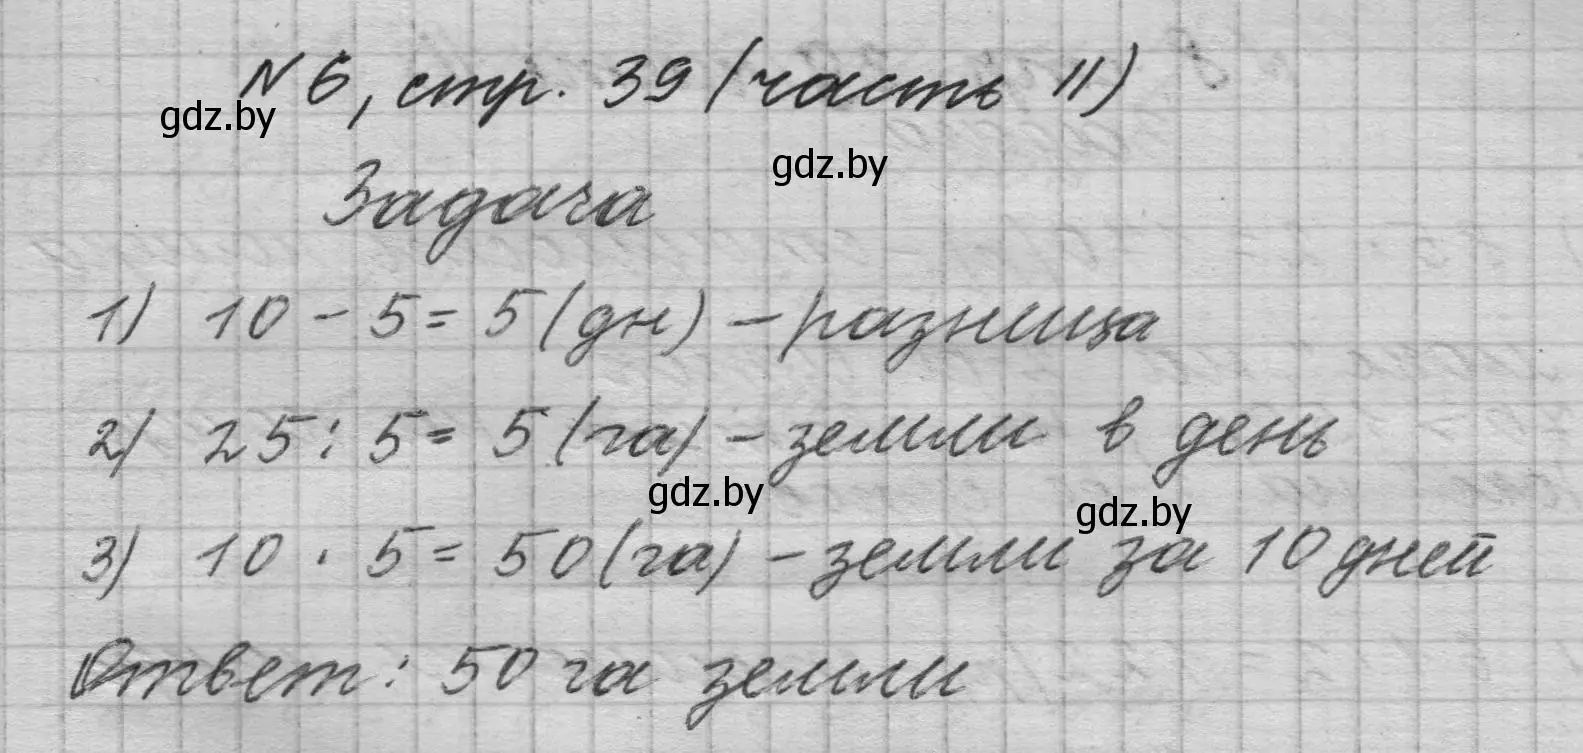 № 6, стр. 39 (часть II)
gdz.by
gdz.by
Задача
1) 10 - 5 = 5 (дн) - разница
2) 25 : 5 = 5 (га) - земли в день
gdz.by
gdz.by
3) 10 · 5 = 50 (га) - земли за 10 дней
Ответ: 50 га земли